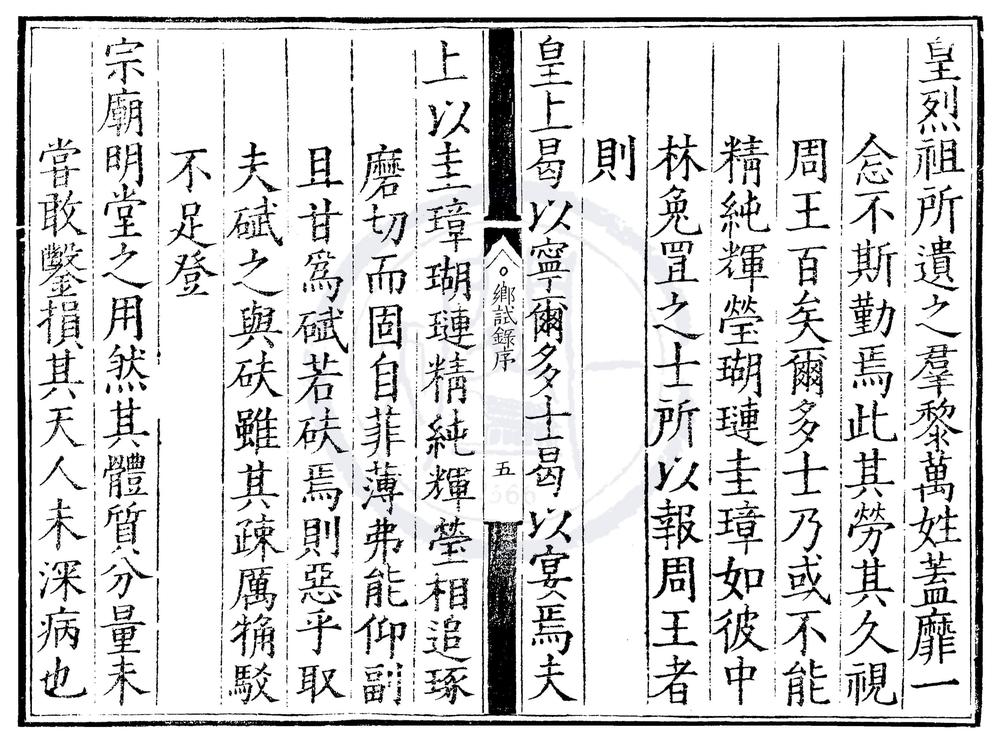 皇烈祖所遺之羣黎萬姓蓋靡一
念不斯勤焉此其勞其久視
周王百矣爾多士乃或不能
精純輝瑩瑚璉圭璋如彼中
林兔罝之士所以報周王者
則
皇上曷以寧爾多士曷以宴焉夫
鄉試錄序
五
上以圭璋瑚璉精純輝瑩相追琢
磨切而固自菲薄弗能仰副
且甘爲碔若砆焉則惡乎取
夫碔之與砆雖其疎厲觕駁
不足登
宗廟明堂之用然其體質分量未
嘗敢鑿損其天人未深病也